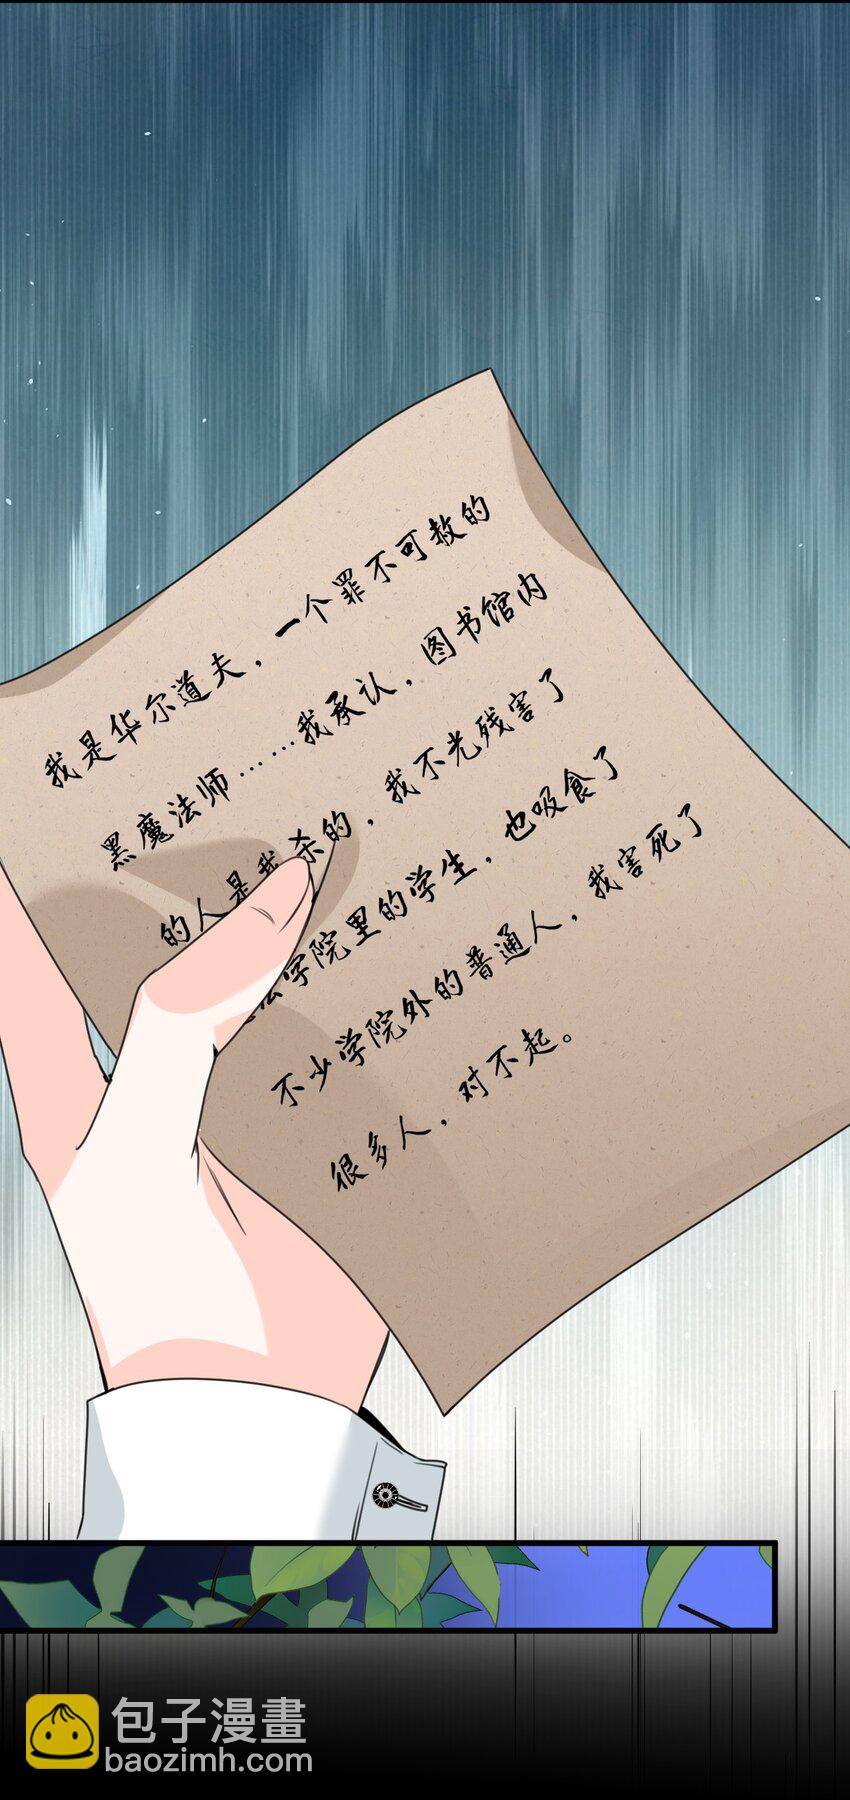 我是华尔道夫，一个罪不可赦的
黑魔法师……我承认，图书馆内
的人是我杀的，我不光残害了
法学院里的学生，也吸食了
不少学院外的普通人，我害死了
很多人，对不起。
包子漫畫
baozimh.com